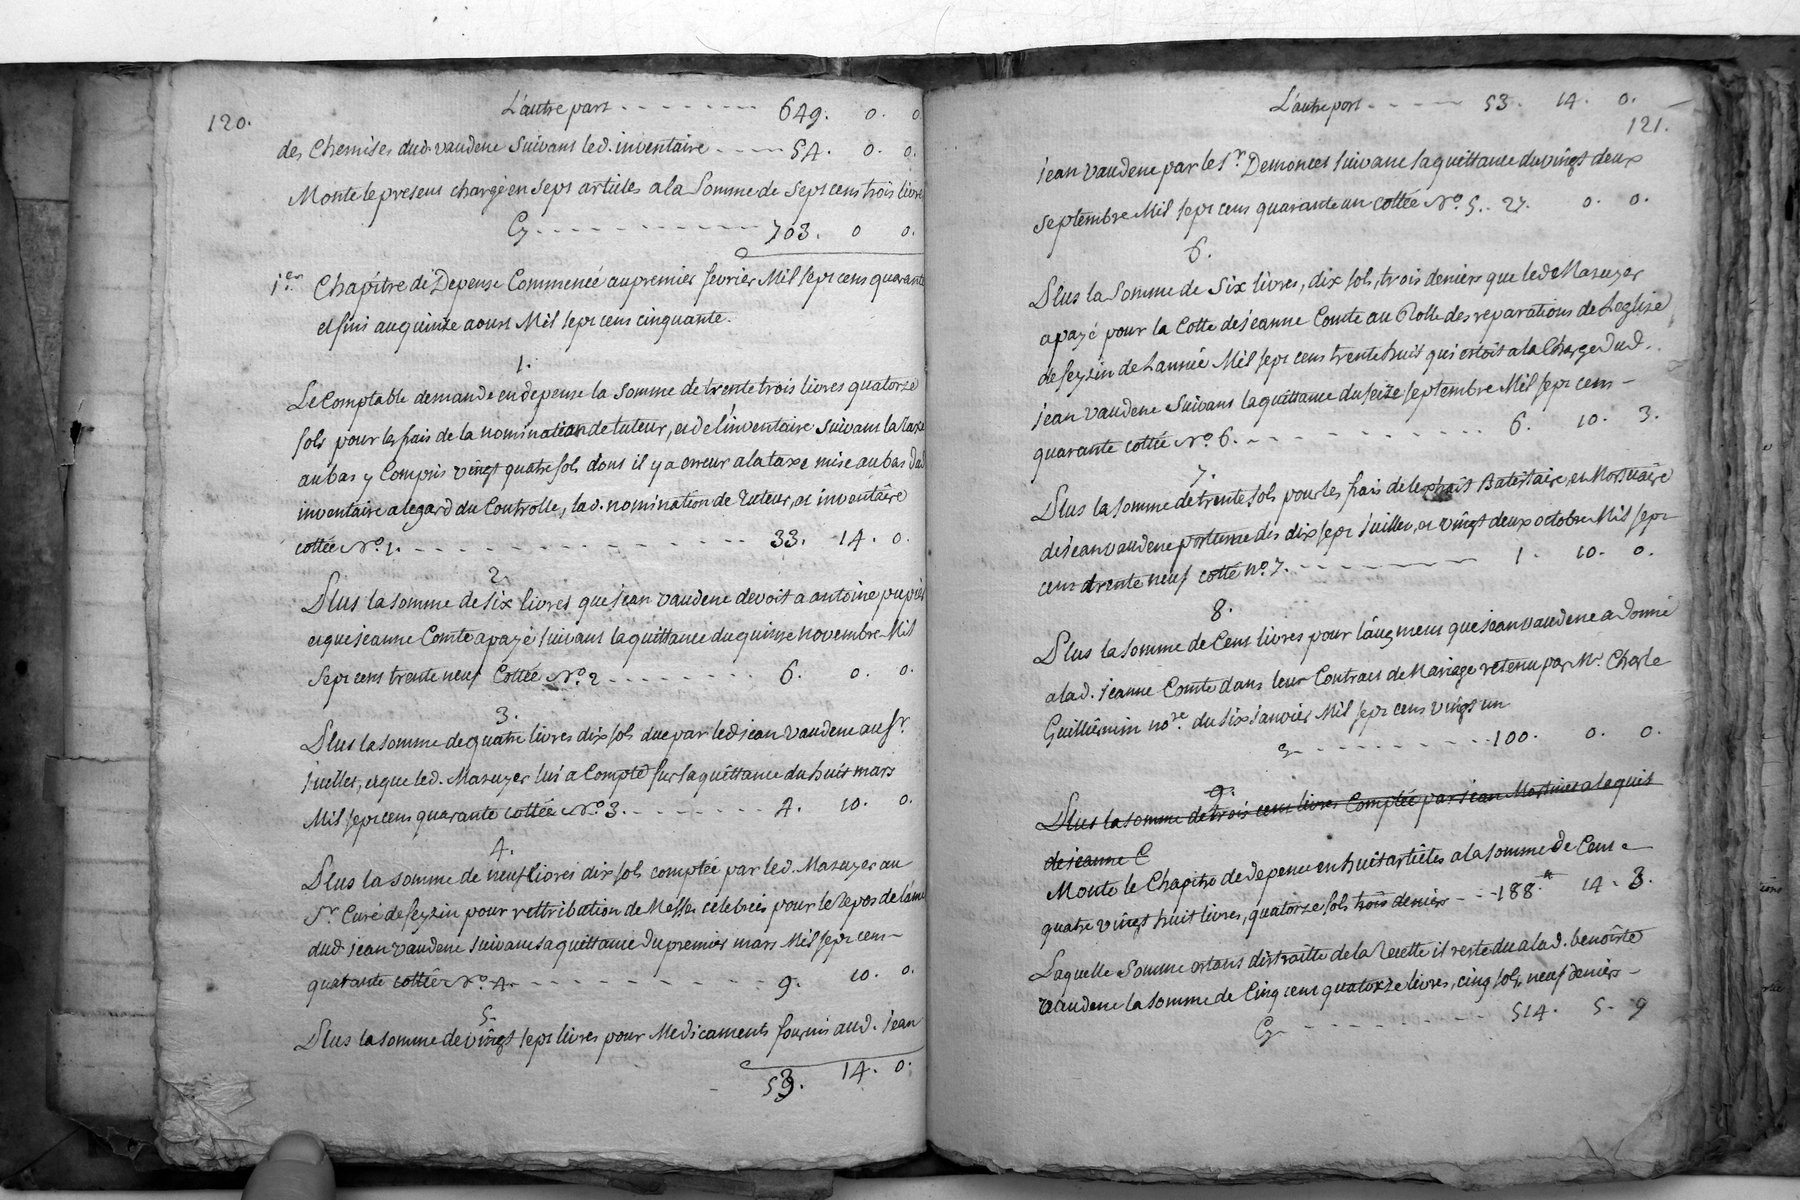 120.
L'autre part - - - - - - - - 649. 0. 0.
des Chemises dud. vaudene Suivant led. inventaire - - - - 54. 0. 0.
Monte le present chargé en sept articles a la Somme de sept cens trois livres
Cy - - - - - - - - - - - 703. 0 0.
1er. Chapitre de Depense Commencé au premier fevrier Mil sept cens quarante
et fini au quinze aoust Mil sept cens cinquante.
1.
Le Comptable demande en depense la Somme de trente trois livres quatorze
sols pour les frais de la nomination de tuteur, et de l'inventaire Suivant la taxe
au bas y Compris vingt quatre sols dont il y a erreur a la taxe mise au bas dud
inventaire a legard du Controlle, lad. nomination de Tuteur, et inventaire
cottée No. 1. - - - - - - - - - - - - 33. 14. 0.
2.
Plus la somme de six livres que jean vaudene devoit a antoine pupier
et que jeanne Comte a payé suivant la quittance du quinze novembre Mil
Sept cens trente neuf Cottée No. 2 - - - - - - - 6. 0. 0.
3.
Plus la somme de quatre livres dix sols due par led jean vaudene au sr.
juelles, et que led. Mazuyer lui a Compté sur la quittance du huit mars
Mil sept cens quarante cottée No. 3. - - - - - - - 4. 10. 0.
4.
Plus la somme de neuf livres dix sols comptée par led. Mazuyer au
Sr. Curé de feyzin pour rettribution de Messes celebrées pour le repos de l'ame
dud jean vaudene suivant sa quittance du premier mars Mil sept cens -
quarante cottée No. 4. - - - - - - - - - - 9. 10. 0.
5.
Plus la somme de vingt sept livres pour Medicaments fournis aud. jean
53. 14. 0.
L'autre part - - - - - 53. 14. 0.
121.
jean vaudene par le Sr. Demonces suivant sa quittance du vingt deux
septembre Mil sept cens quarante un cottée No. 5. - 27. 0. 0.
6.
Plus la Somme de Six livres, dix sols, trois deniers que led Mazuyer
a payé pour la Cotte de jeanne Comte au Rolle des reparations de Leglise
de feyzin de Lannée Mil sept cens trente huit qui estoit a la Charge dud.
jean vaudene Suivant la quittance du seize septembre Mil sept cens -
quarante cottée No. 6. - - - - - - - - - - 6. 10. 3.
7.
Plus la somme de trente sols pour les frais de lextrait Batistaire, et Mortuaire
de jean vaudene postume des dix sept juillet, et vingt deux octobre Mil sept
cens trente neuf cotté no. 7. - - - - - - - - 1. 10. 0.
8.
Plus la somme de Cent livres pour l'augment que jean vaudene a donné
a lad. jeanne Comte dans leur Contract de Mariage retenu par Mr. Charle
Guilliermin nore. du six janvier Mil sept cens vingt un
Cy - - - - - - - - 100. 0. 0.
9.
Plus la somme de trois cent livres Comptée par jean Mortmier a la quit
de jeanne C
Monte le Chapitre de depence en huit articles a la somme de Cent -
quatre vingt huit livres, quatorze sols trois deniers - - 188.tt 14. 3.
Laquelle Somme estant distraitte de la Recette il reste du a lad. benoitte
vaudene la somme de Cinq cent quatorze livres, cinq sols, neuf deniers -
Cy - - - - - - - - - - 514. 5. 9